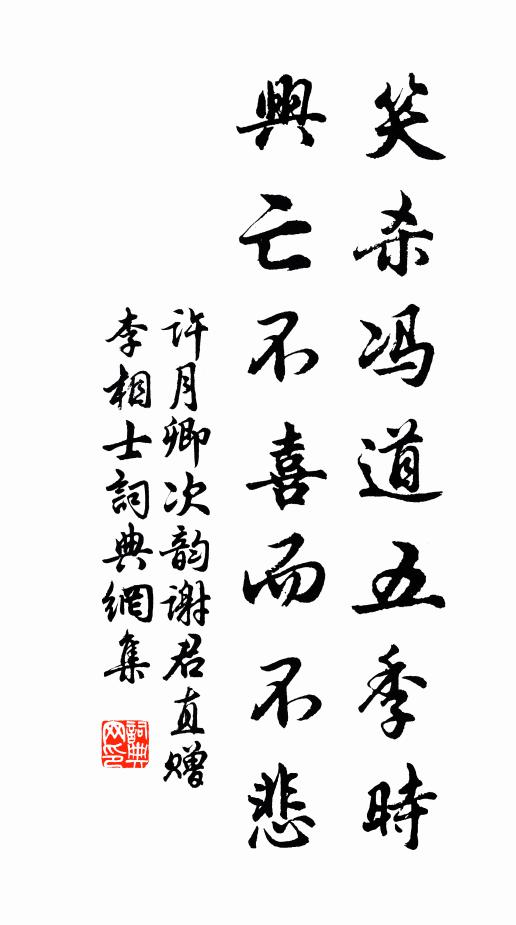 笑杀冯道五季時
興亡不喜而不悲
许月卿次韵谢君直赠
李相士詞典網集
詞典网印